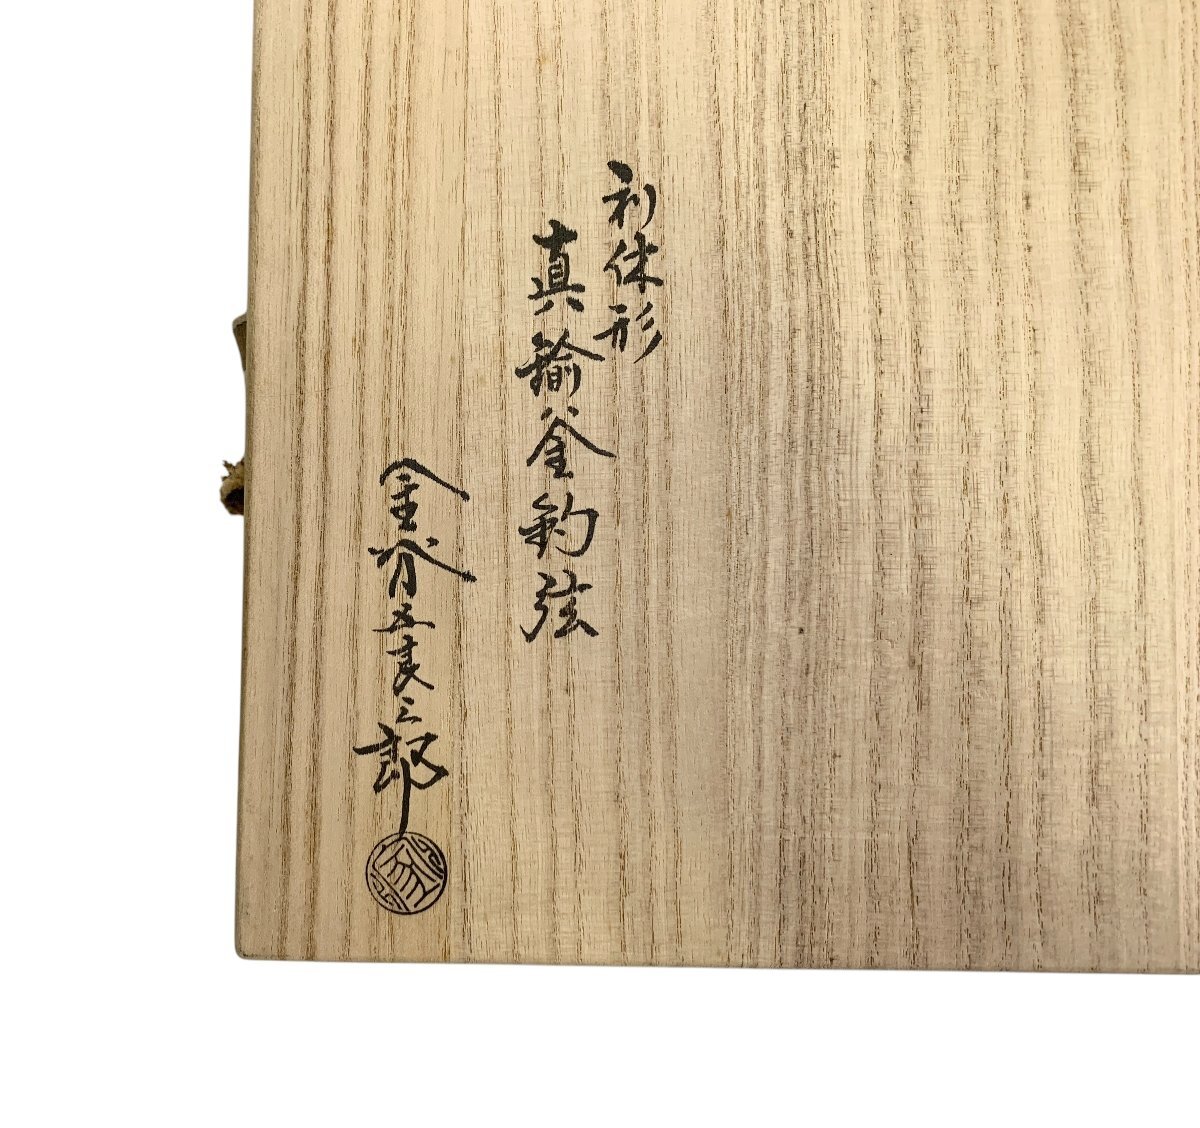 利休形
真鍮釜釣弦
金谷五良三郎